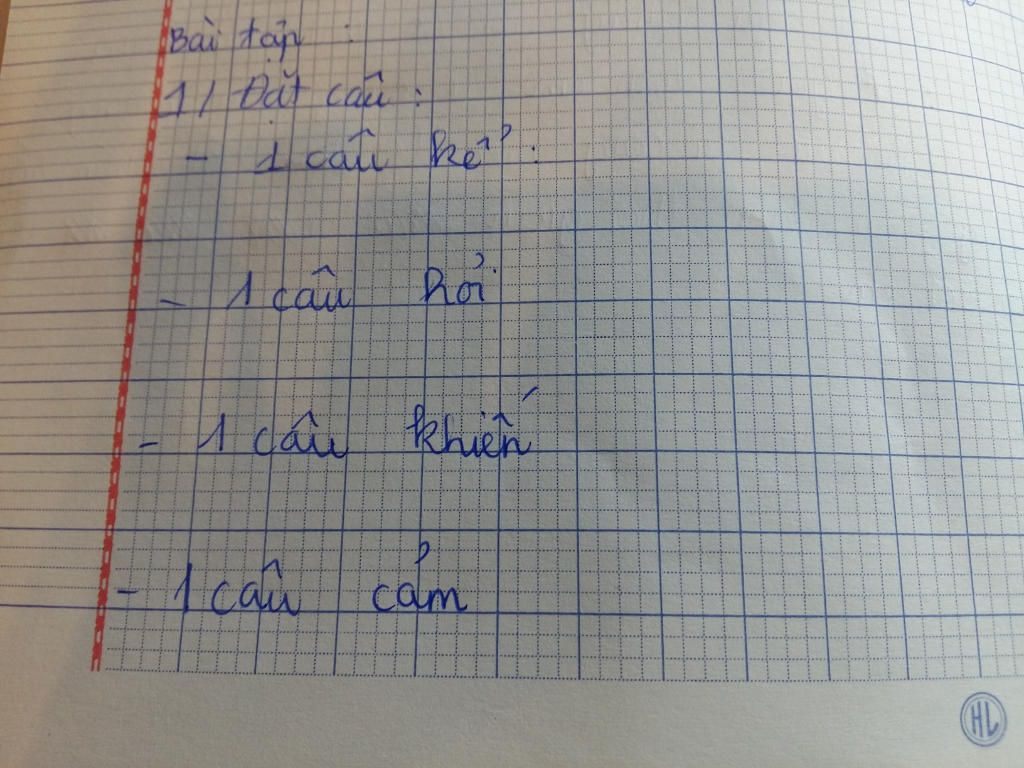 Bài tập :
1/ Đặt câu :
- 1 câu kể :
- 1 câu hỏi
- 1 câu khiến
- 1 câu cảm
HL